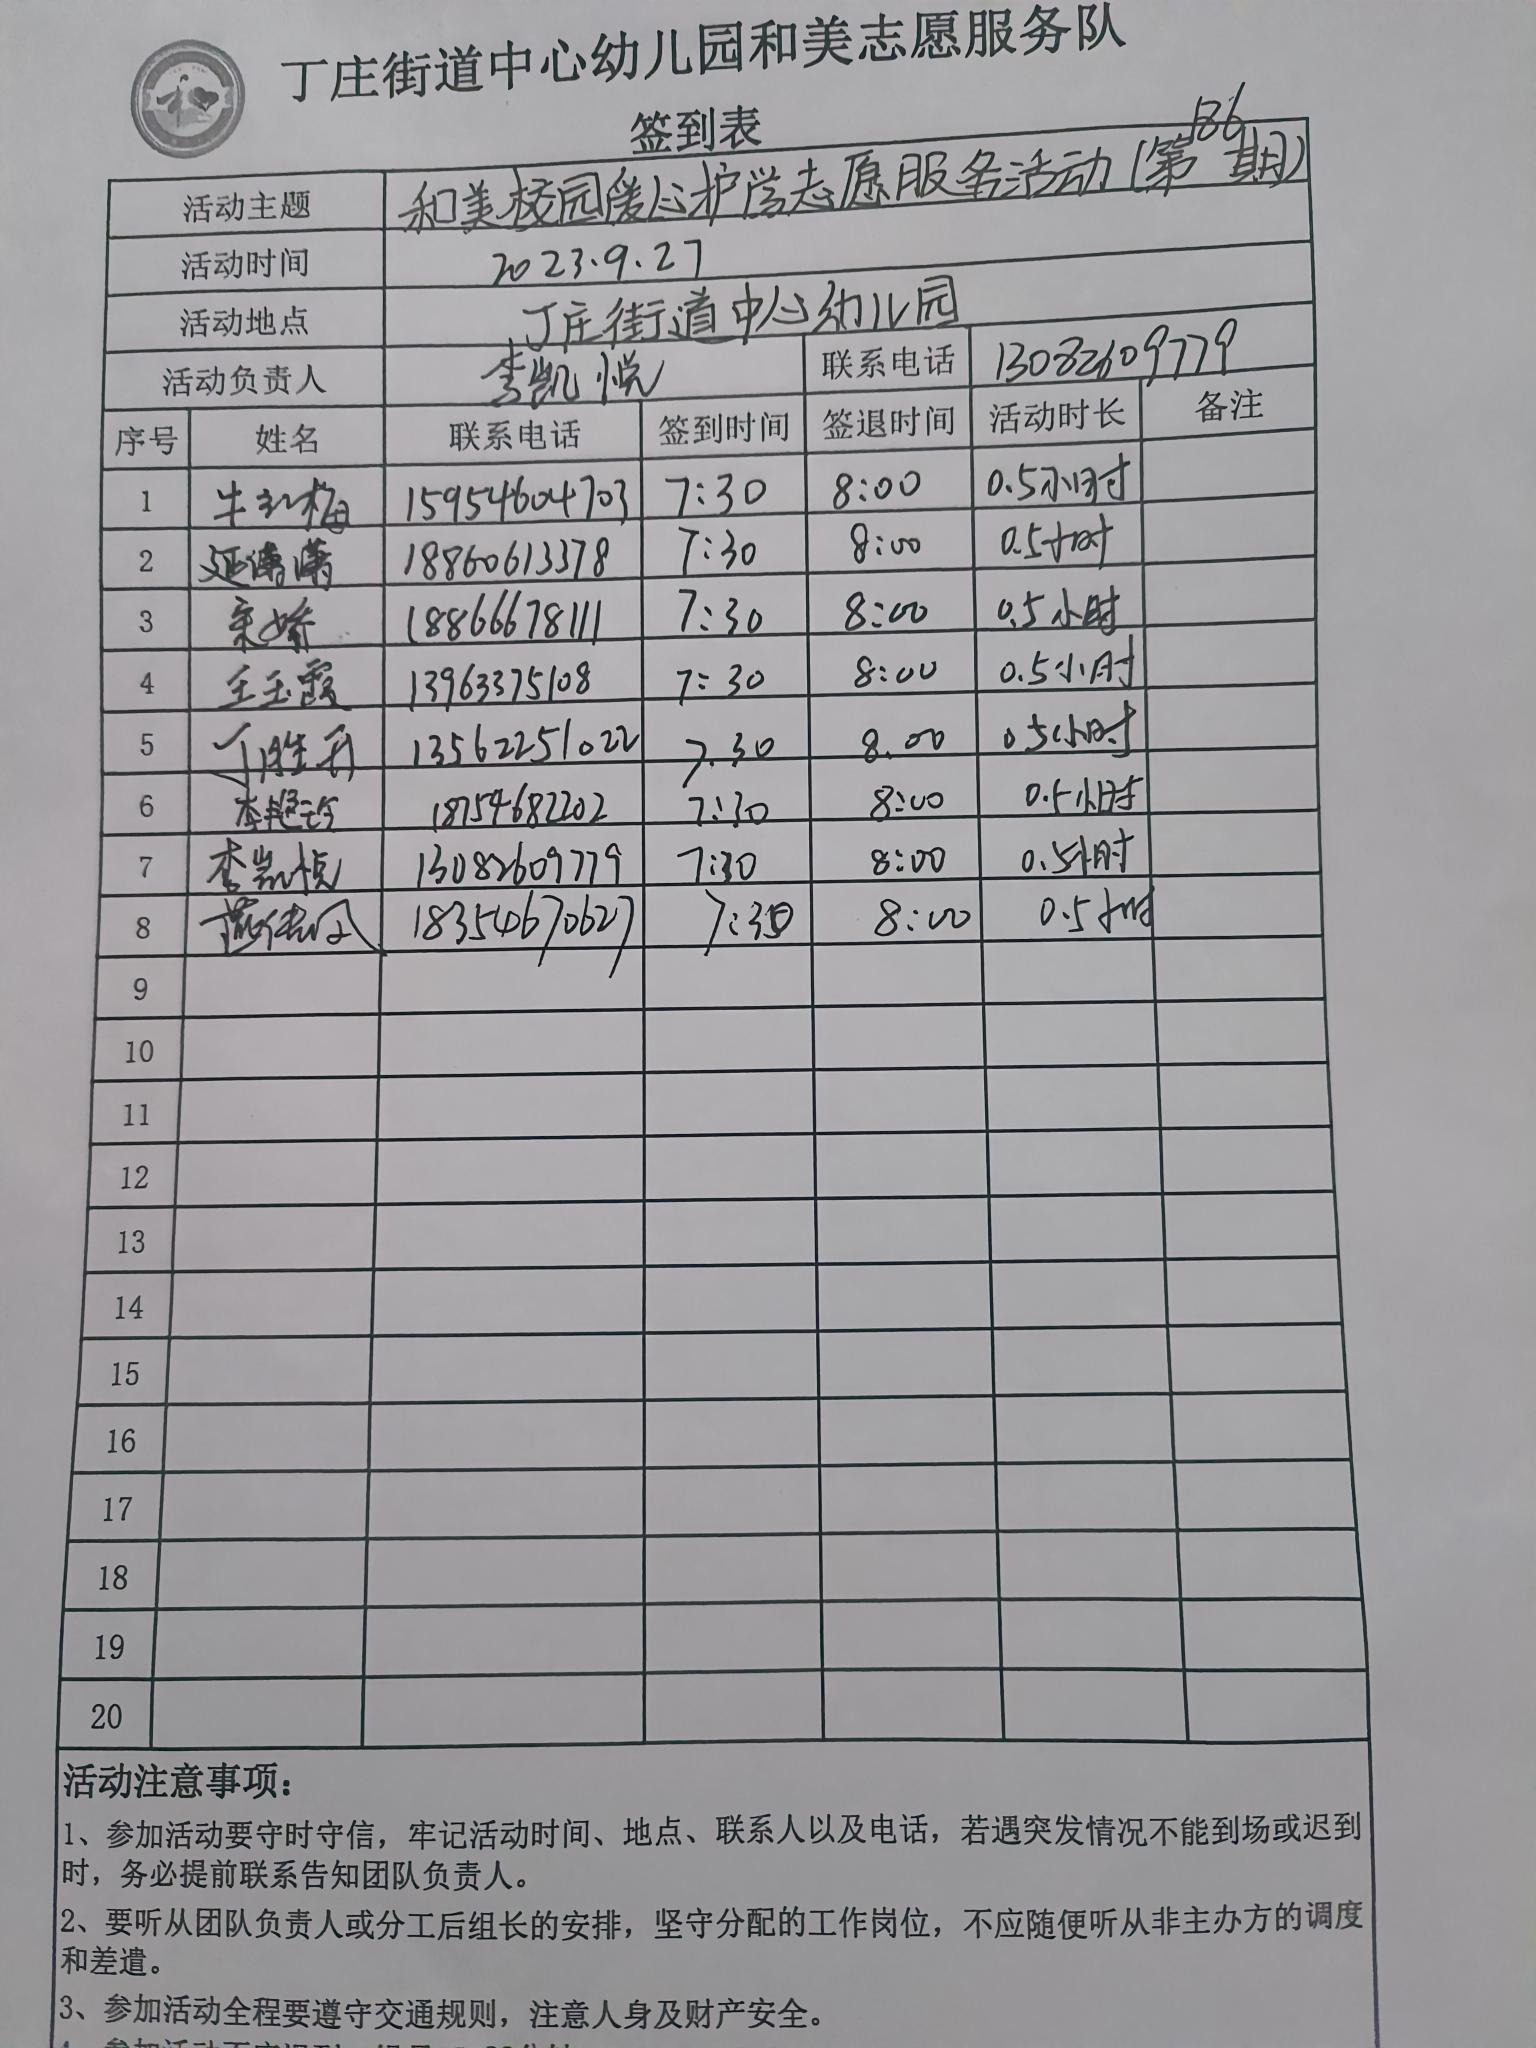 丁庄街道中心幼儿园和美志愿服务队
签到表
活动主题 和美校园爱心护学志愿服务活动(第186期)
活动时间 2023.9.27
活动地点 丁庄街道中心幼儿园
活动负责人 李凯悦 联系电话 13082609779
序号 姓名 联系电话 签到时间 签退时间 活动时长 备注
1 牛红梅 15954604703 7:30 8:00 0.5小时
2 延潇潇 18860613378 7:30 8:00 0.5小时
3 宋娇 18866678111 7:30 8:00 0.5小时
4 王玉霞 13963375108 7:30 8:00 0.5小时
5 13562251022 7.30 8.00 0.5小时
6 18754682202 7:30 8:00 0.5小时
7 李凯悦 13082609779 7:30 8:00 0.5小时
8 18354670627 7:30 8:00 0.5小时
9
10
11
12
13
14
15
16
17
18
19
20
活动注意事项:
1、参加活动要守时守信，牢记活动时间、地点、联系人以及电话，若遇突发情况不能到场或迟到
时，务必提前联系告知团队负责人。
2、要听从团队负责人或分工后组长的安排，坚守分配的工作岗位，不应随便听从非主办方的调度
和差遣。
3、参加活动全程要遵守交通规则，注意人身及财产安全。